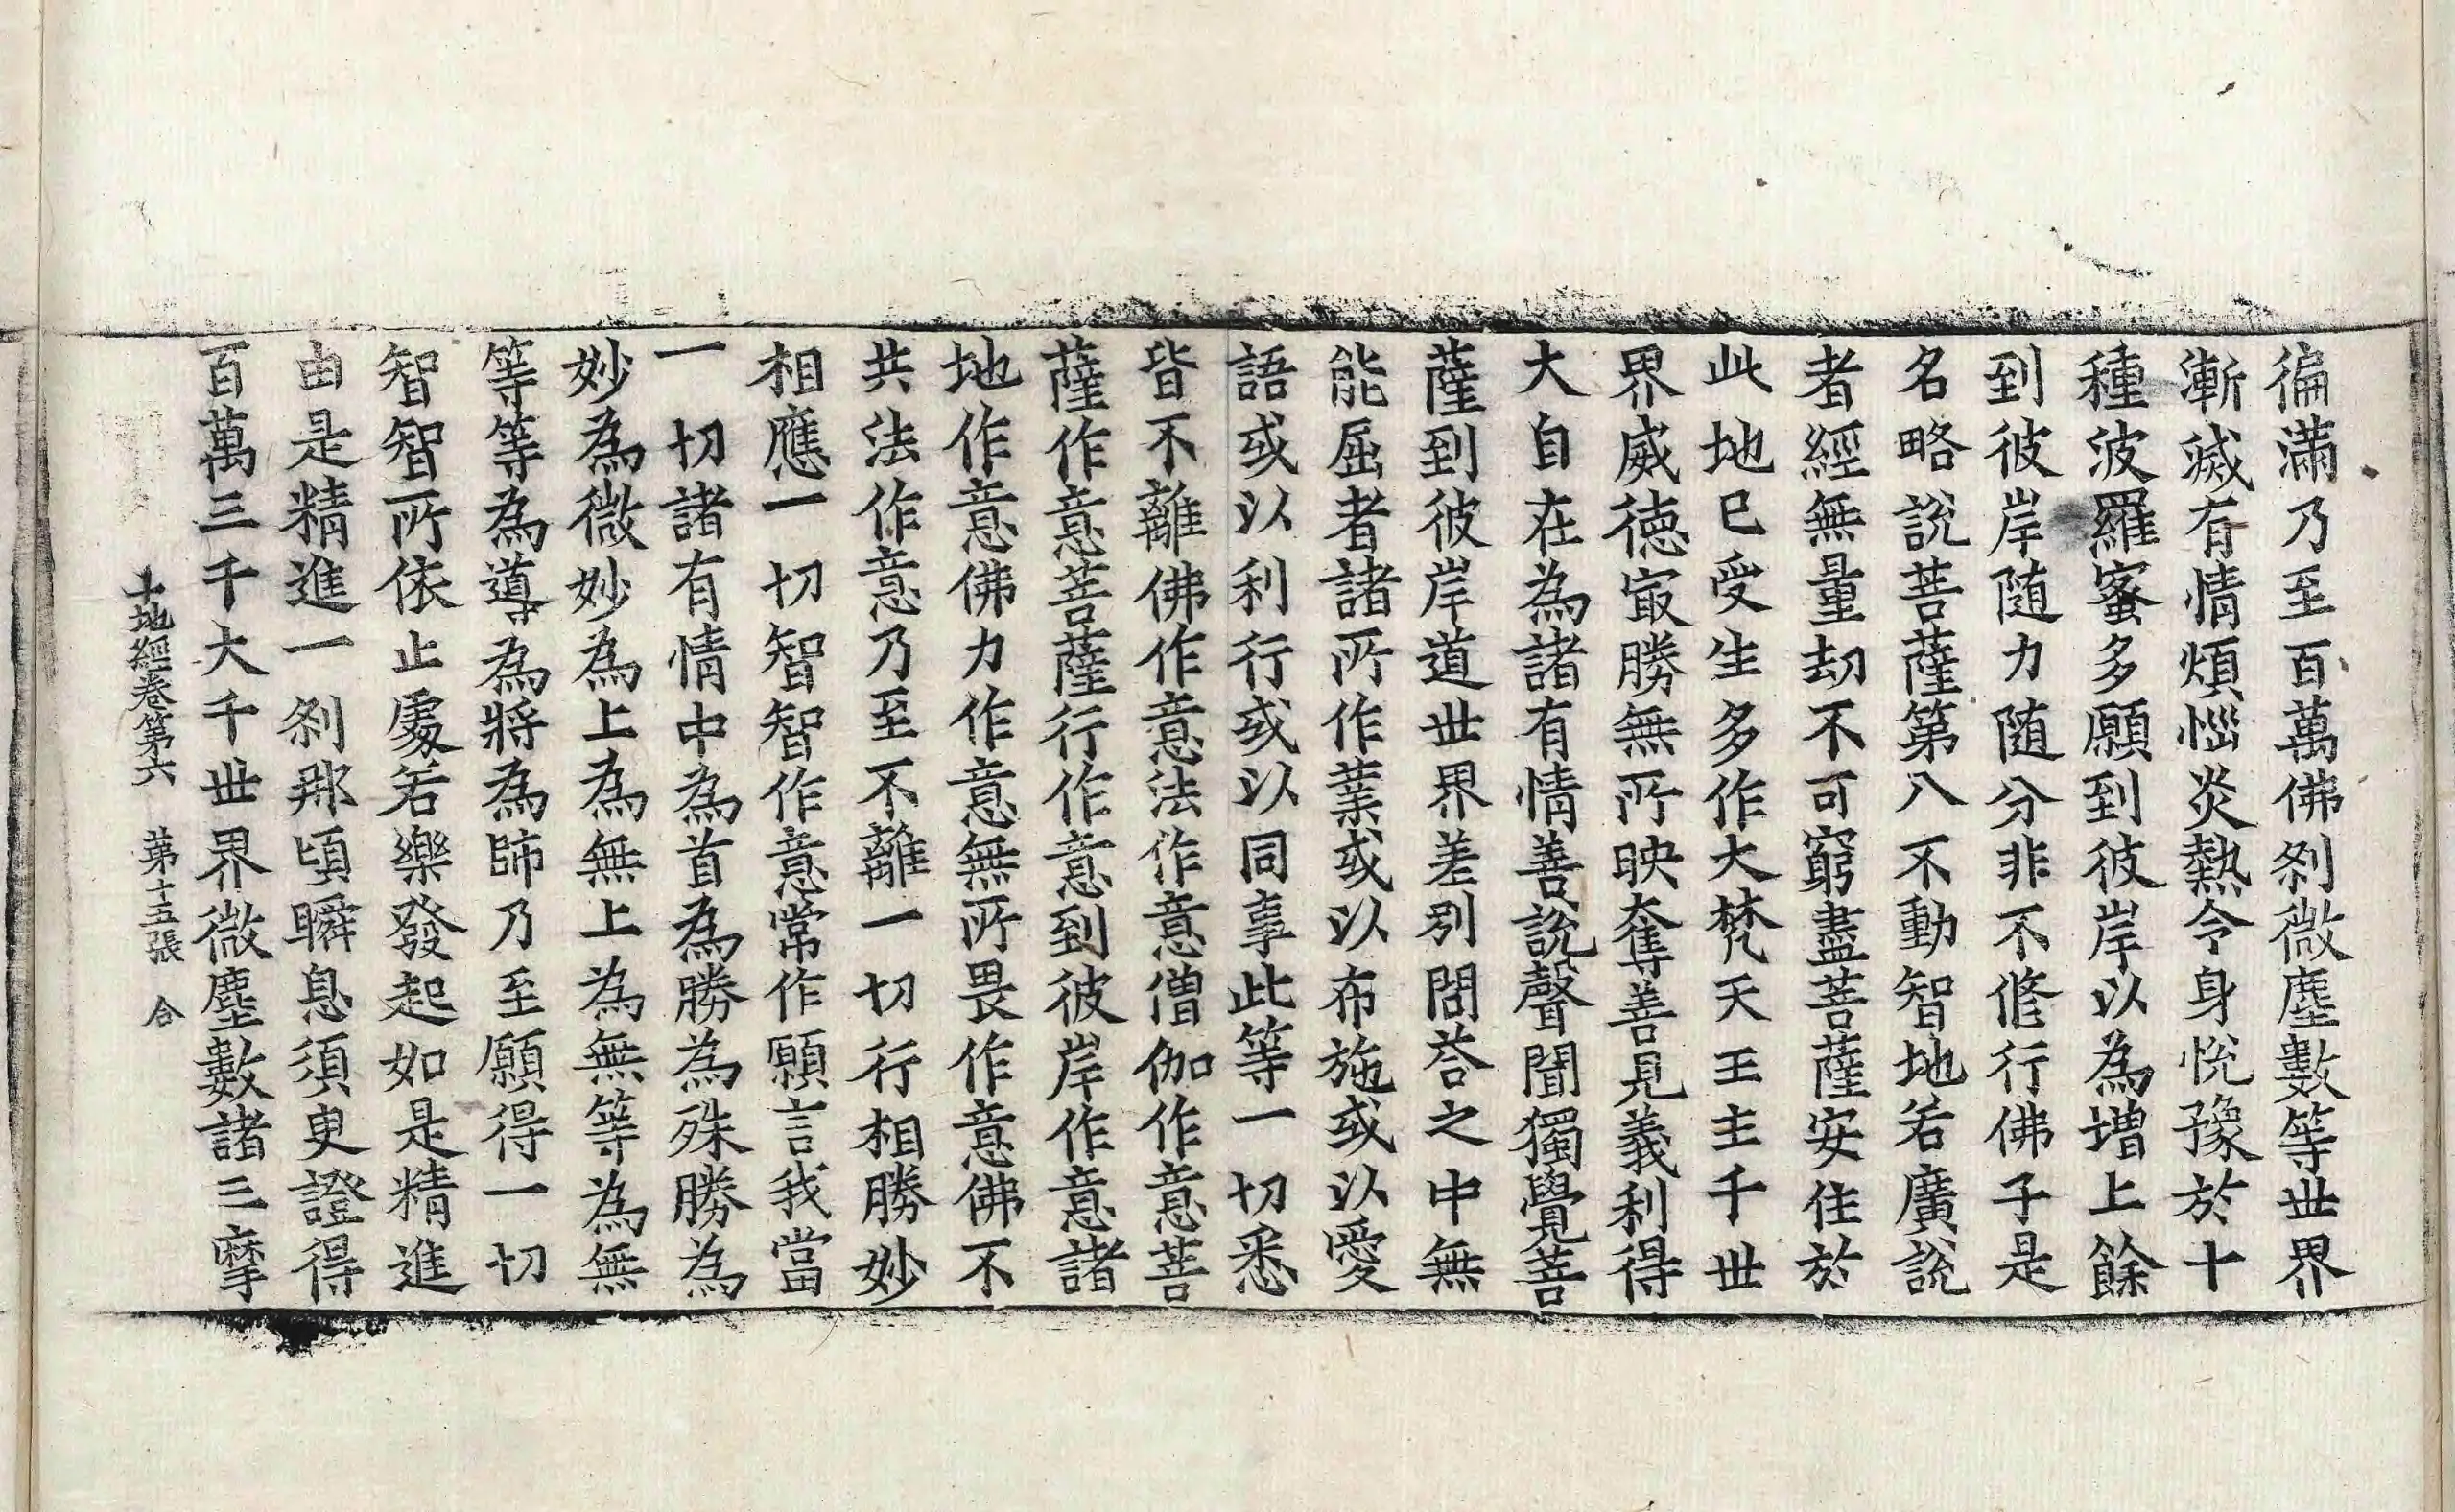 徧滿乃至百萬佛剎微塵數等世界
漸滅有情煩惱炎熱令身悅豫於十
種波羅蜜多願到彼岸以為增上餘
到彼岸随力随分非不修行佛子是
名略說菩薩第八不動智地若廣說
者經無量劫不可窮盡菩薩安住於
此地已受生多作大梵天王主千世
界威德㝡勝無所映奪善見義利得
大自在為諸有情善說聲聞獨覺菩
薩到彼岸道世界差別問荅之中無
能屈者諸所作業或以布施或以愛
語或以利行或以同事此等一切悉
皆不離佛作意法作意僧伽作意菩
薩作意菩薩行作意到彼岸作意諸
地作意佛力作意無所畏作意佛不
共法作意乃至不離一切行相勝妙
相應一切智智作意常作願言我當
一切諸有情中為首為勝為殊勝為
妙為微妙為上為無上為無等為無
等等為導為將為師乃至願得一切
智智所依止處若樂發起如是精進
由是精進一剎那頃瞬息須臾證得
百萬三千大千世界微塵數諸三摩
十地經卷第六 第十五張 合